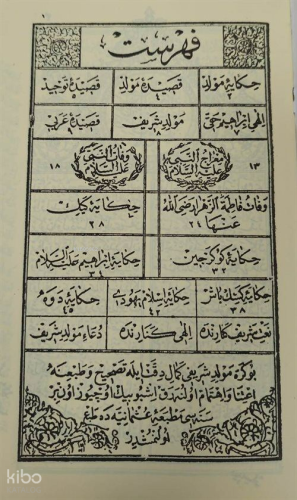 ١
فهرست
حكايۀ مولد ٢ قصيدۀ مولد قصيدۀ توحيد
الهى ابراهيم حقى مولد شريف قصيدۀ عربى
١٣ معراج النبى عليه السلام وفات النبى عليه السلام ١٨
وفات فاطمة الزهرا رضى الله عنها ٢١ حكايۀ كيك ٢٨
حكايۀ كوكرجين ٣٢ حكايۀ ابراهيم عليه السلام ٣٤
حكايۀ كسك باش ٣٨ حكايۀ اسلام يهودى ٤٢ حكايۀ دوه ٤٥
نعت شريف الهى دعاء مولد شريف
بو كره مولد شريفى كمال دقت ايله تصحيح و طبعنه
اعتنا و اهتمام اولنه رق اشبو بيك اوچيوز اونبر
سنه سى مطبعۀ عثمانيه ده طبع
اولنمشدر
kibo